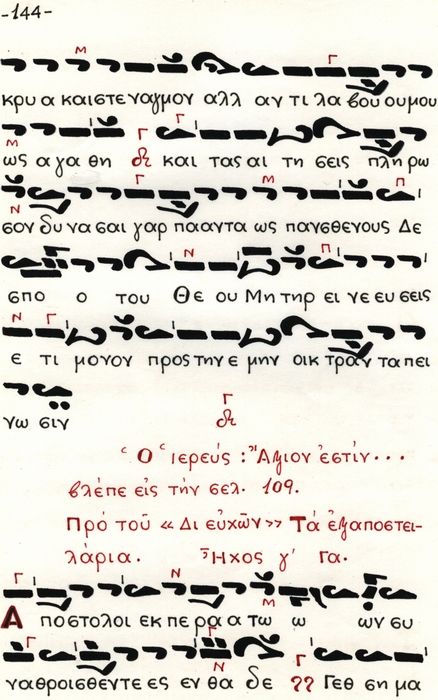 -144-
κρυ α και στε ναγμον αλλ αν τι λα βου ου μου
ως α γα θη και τας αι τη σεις πλη ρω
σον δυ να σαι γαρ πα αν τα ως παν σθε νους Δε
σπο ο του Θε ου Μη τηρ ει νε ευ σεις
ε τι μο νον προς την ε μην οικ τραν τα πει
νω σιν
Ὁ ἱερεύς: Ἄξιον ἐστίν...
βλέπε εἰς τήν σελ. 109.
Πρό τοῦ «Δι εὐχῶν» Τά ἐξαποστει-
λάρια. Ἦχος γ' Γα.
Α πο στο λοι εκ πε ρα α τω ω ων συ
να θροι σθεν τε ες εν θα δε Γεθ ση μα